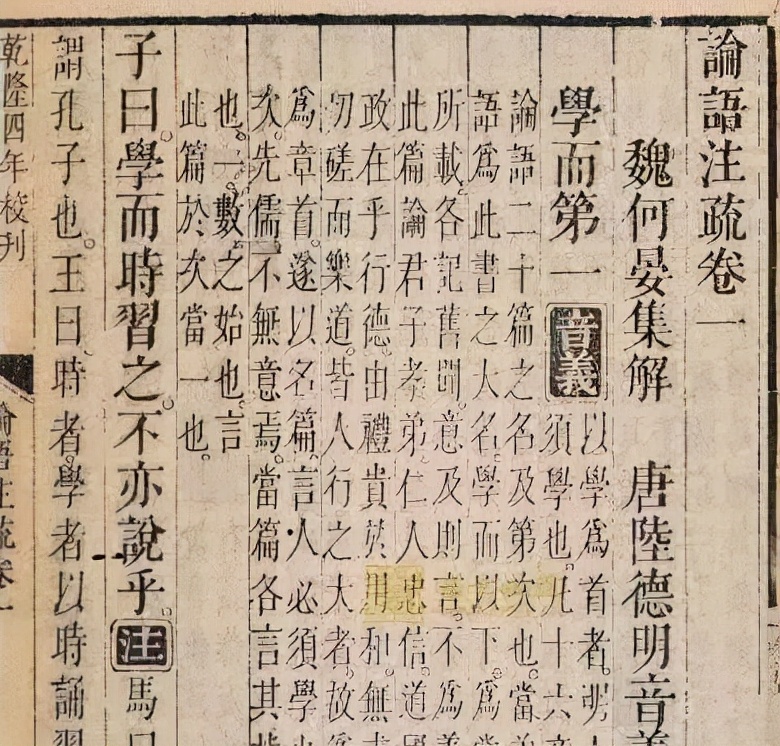 論語注疏卷一
魏何晏集解　唐陸德明音義
學而第一 音義 以學爲首者。明人
須學也。凡十六章
論語二十篇之名及第次也。當弟
語爲此書之大名。學而以下。爲當
所載各記舊聞。意及則言。不爲義
此篇論君子孝弟仁人忠信。道國
政在乎行德。由禮貴於用和。無求
切磋而樂道。皆人行之大者。故爲
爲章首。遂以名篇。言人必須學也
次。先儒不無意焉。當篇各言其指
也。一數之始也。言
此篇於次當一也。
子曰。學而時習之。不亦說乎。注 馬曰
謂孔子也。王曰。時者。學者以時誦習
乾隆四年校刊
論語注疏卷一